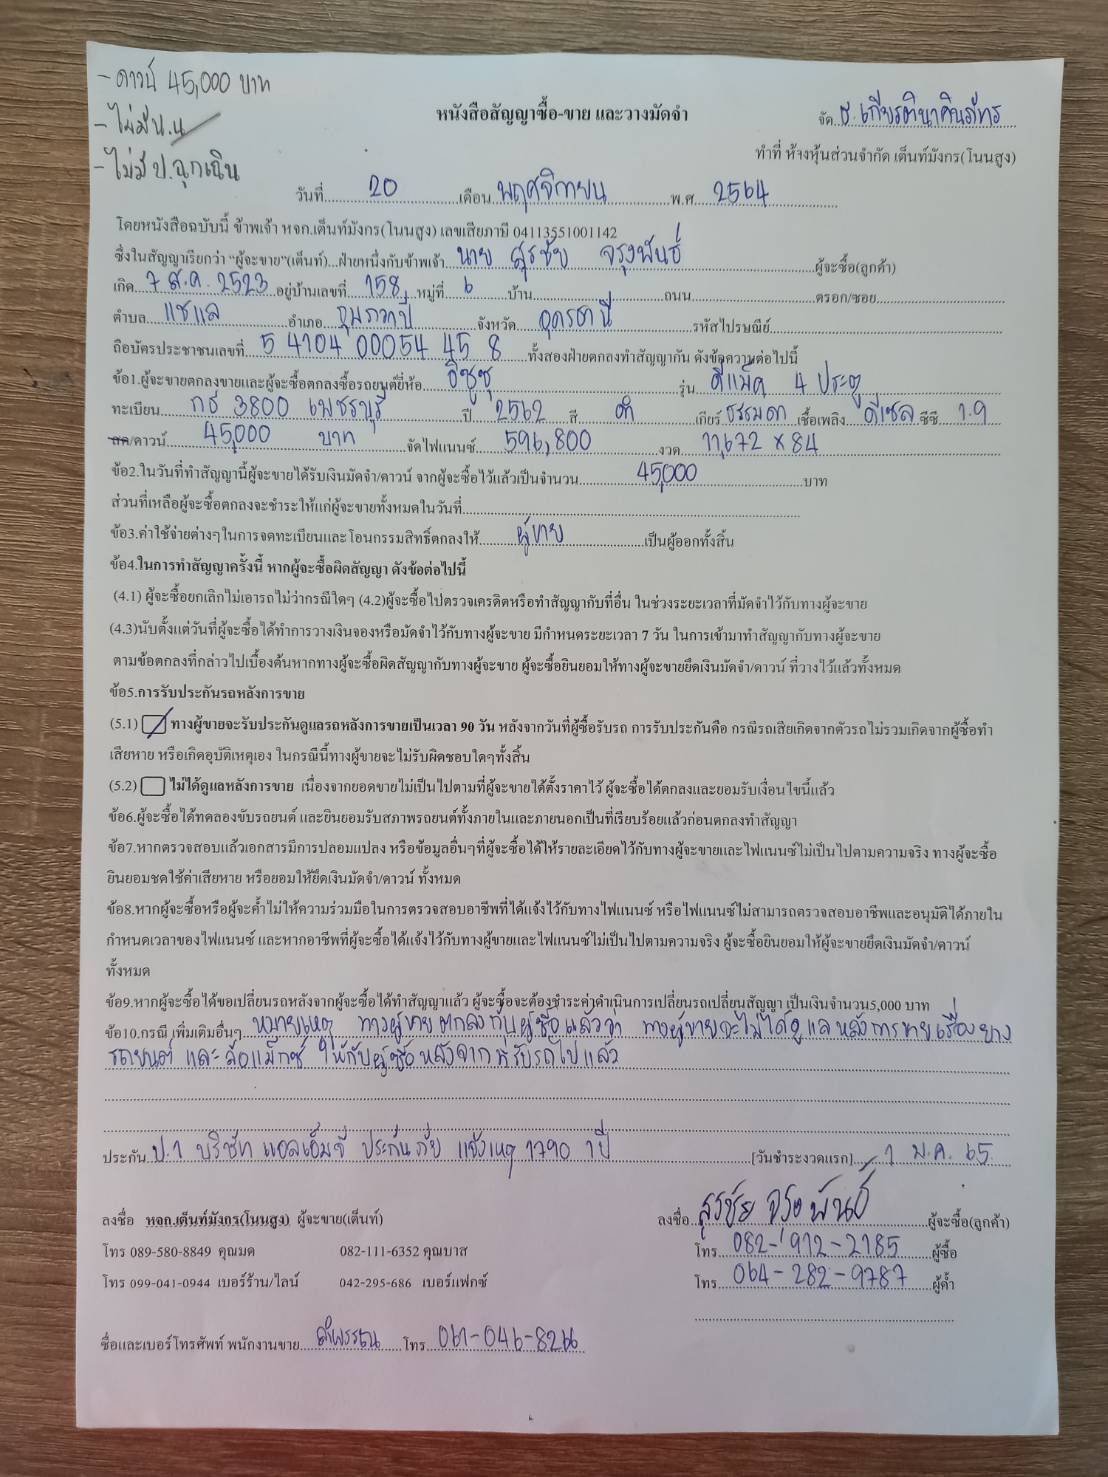 - ดาวน์ 45,000 บาท
- ไม่มี น.น
- ไม่มี ป.ฉุกเฉิน
หนังสือสัญญาซื้อ-ขาย และวางมัดจำ
จัด ธ.เกียรตินาคินภัทร
ทำที่ ห้างหุ้นส่วนจำกัด เต็นท์มังกร(โนนสูง)
วันที่ 20 เดือน พฤศจิกายน พ.ศ 2564
โดยหนังสือฉบับนี้ ข้าพเจ้า หจก.เต็นท์มังกร(โนนสูง) เลขเสียภาษี 04113551001142
ซึ่งในสัญญาเรียกว่า "ผู้จะขาย"(เต็นท์)...ฝ่ายหนึ่งกับข้าพเจ้า นาย สุรชัย จรุงพันธ์ ผู้จะซื้อ(ลูกค้า)
เกิด 7 ส.ค. 2523 อยู่บ้านเลขที่ 158 หมู่ที่ 6 บ้าน ถนน ตรอก/ซอย
ตำบล แชแล อำเภอ กุมภวาปี จังหวัด อุดรธานี รหัสไปรษณีย์
ถือบัตรประชาชนเลขที่ 5 4104 00054 45 8 ทั้งสองฝ่ายตกลงทำสัญญากัน ดังข้อความต่อไปนี้
ข้อ1.ผู้จะขายตกลงขายและผู้จะซื้อตกลงซื้อรถยนต์ยี่ห้อ อีซูซุ รุ่น ดีแม็ค 4 ประตู
ทะเบียน กธ 3800 เพชรบุรี ปี 2562 สี ดำ เกียร์ ธรรมดา เชื้อเพลิง ดีเซล ซีซี 1.9
สด/ดาวน์ 45,000 บาท จัดไฟแนนซ์ 596,800 งวด 11,672 x 84
ข้อ2.ในวันที่ทำสัญญานี้ผู้จะขายได้รับเงินมัดจำ/ดาวน์ จากผู้จะซื้อไว้แล้วเป็นจำนวน 45,000 บาท
ส่วนที่เหลือผู้จะซื้อตกลงจะชำระให้แก่ผู้จะขายทั้งหมดในวันที่
ข้อ3.ค่าใช้จ่ายต่างๆในการจดทะเบียนและโอนกรรมสิทธิ์ตกลงให้ ผู้ขาย เป็นผู้ออกทั้งสิ้น
ข้อ4.ในการทำสัญญาครั้งนี้ หากผู้จะซื้อผิดสัญญา ดังข้อต่อไปนี้
(4.1) ผู้จะซื้อยกเลิกไม่เอารถไม่ว่ากรณีใดๆ (4.2)ผู้จะซื้อไปตรวจเครดิตหรือทำสัญญากับที่อื่น ในช่วงระยะเวลาที่มัดจำไว้กับทางผู้จะขาย
(4.3)นับตั้งแต่วันที่ผู้จะซื้อได้ทำการวางเงินจองหรือมัดจำไว้กับทางผู้จะขาย มีกำหนดระยะเวลา 7 วัน ในการเข้ามาทำสัญญากับทางผู้จะขาย
ตามข้อตกลงที่กล่าวไปเบื้องต้นหากทางผู้จะซื้อผิดสัญญากับทางผู้จะขาย ผู้จะซื้อยินยอมให้ทางผู้จะขายยึดเงินมัดจำ/ดาวน์ ที่วางไว้แล้วทั้งหมด
ข้อ5.การรับประกันรถหลังการขาย
(5.1) ทางผู้ขายจะรับประกันดูแลรถหลังการขายเป็นเวลา 90 วัน หลังจากวันที่ผู้ซื้อรับรถ การรับประกันคือ กรณีรถเสียเกิดจากตัวรถไม่รวมเกิดจากผู้ซื้อทำ
เสียหาย หรือเกิดอุบัติเหตุเอง ในกรณีนี้ทางผู้ขายจะไม่รับผิดชอบใดๆทั้งสิ้น
(5.2) ไม่ได้ดูแลหลังการขาย เนื่องจากยอดขายไม่เป็นไปตามที่ผู้จะขายได้ตั้งราคาไว้ ผู้จะซื้อได้ตกลงและยอมรับเงื่อนไขนี้แล้ว
ข้อ6.ผู้จะซื้อได้ทดลองขับรถยนต์ และยินยอมรับสภาพรถยนต์ทั้งภายในและภายนอกเป็นที่เรียบร้อยแล้วก่อนตกลงทำสัญญา
ข้อ7.หากตรวจสอบแล้วเอกสารมีการปลอมแปลง หรือข้อมูลอื่นๆที่ผู้จะซื้อได้ให้รายละเอียดไว้กับทางผู้จะขายและไฟแนนซ์ไม่เป็นไปตามความจริง ทางผู้จะซื้อ
ยินยอมชดใช้ค่าเสียหาย หรือยอมให้ยึดเงินมัดจำ/ดาวน์ ทั้งหมด
ข้อ8.หากผู้จะซื้อหรือผู้จะค้ำไม่ให้ความร่วมมือในการตรวจสอบอาชีพที่ได้แจ้งไว้กับทางไฟแนนซ์ หรือไฟแนนซ์ไม่สามารถตรวจสอบอาชีพและอนุมัติได้ภายใน
กำหนดเวลาของไฟแนนซ์ และหากอาชีพที่ผู้จะซื้อได้แจ้งไว้กับทางผู้ขายและไฟแนนซ์ไม่เป็นไปตามความจริง ผู้จะซื้อยินยอมให้ผู้จะขายยึดเงินมัดจำ/ดาวน์
ทั้งหมด
ข้อ9.หากผู้จะซื้อได้ขอเปลี่ยนรถหลังจากผู้จะซื้อได้ทำสัญญาแล้ว ผู้จะซื้อจะต้องชำระค่าดำเนินการเปลี่ยนรถเปลี่ยนสัญญา เป็นเงินจำนวน5,000 บาท
ข้อ10.กรณี เพิ่มเติมอื่นๆ หมายเหตุ ทางผู้ขายตกลงกับผู้ซื้อแล้วว่า ทางผู้ขายจะไม่ได้ดูแลหลังการขายเรื่องยาง
รถยนต์ และล้อแม็กซ์ ให้กับผู้ซื้อหลังจากที่รับรถไปแล้ว
ประกัน ป.1 บริษัท แอลเอ็มจี ประกันภัย แจ้งเหตุ 1790 1 ปี [วันชำระงวดแรก] 1 ม.ค. 65
ลงชื่อ หจก.เต็นท์มังกร(โนนสูง) ผู้จะขาย(เต็นท์) ลงชื่อ สุรชัย จรุงพันธ์ ผู้จะซื้อ(ลูกค้า)
โทร 089-580-8849 คุณมด 082-111-6352 คุณบาส โทร 082-912-2185 ผู้ซื้อ
โทร 099-041-0944 เบอร์ร้าน/ไลน์ 042-295-686 เบอร์แฟกซ์ โทร 064-282-9787 ผู้ค้ำ
ชื่อและเบอร์โทรศัพท์ พนักงานขาย โทร 061-046-8266